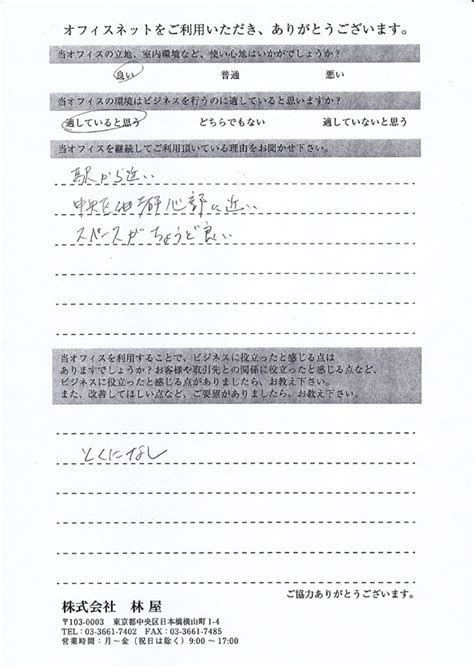 オフィスネットをご利用いただき、ありがとうございます。
当オフィスの立地、室内環境など、使い心地はいかがでしょうか？
良い 普通 悪い
当オフィスの環境はビジネスを行うのに適していると思いますか？
適していると思う どちらでもない 適していないと思う
当オフィスを継続してご利用頂いている理由をお聞かせ下さい。
駅から近い
中央区 都心部に近い
スペースがちょうど良い
当オフィスを利用することで、ビジネスに役立ったと感じる点は
ありますでしょうか？お客様や取引先との関係に役立ったと感じる点など、
ビジネスに役立ったと感じる点がありましたら、お教え下さい。
また、改善してほしい点など、ご要望がありましたら、お教え下さい。
とくになし
ご協力ありがとうございます。
株式会社 林屋
〒103-0003 東京都中央区日本橋横山町1-4
TEL：03-3661-7402 FAX：03-3661-7485
営業時間：月～金（祝日は除く）9:00～17:00